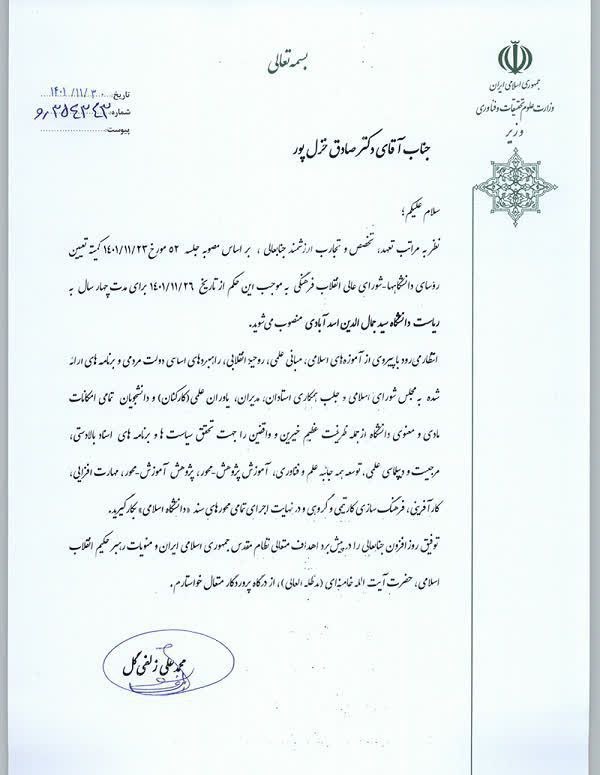 بسمه تعالی
جمهوری اسلامی ایران
وزارت علوم تحقیقات و فناوری
وزیر
تاریخ: ۱۴۰۱/۱۱/۳۰
شماره: و/۳۵۴۲۴۳
پیوست:
جناب آقای دکتر صادق نزل پور
سلام علیکم؛
نظر به مراتب تعهد، تخصص و تجارب ارزشمند جنابعالی ، بر اساس مصوبه جلسه ۵۲ مورخ ۱۴۰۱/۱۱/۲۳ کمیته تعیین
رؤسای دانشگاهها-شورای عالی انقلاب فرهنگی به موجب این حکم از تاریخ ۱۴۰۱/۱۱/۲۶ برای مدت چهار سال به
ریاست دانشگاه سید جمال الدین اسدآبادی منصوب می‌شوید.
انتظار می‌رود با پیروی از آموزه‌های اسلامی، مبانی علمی، روحیۀ انقلابی، راهبردهای اساسی دولت مردمی و برنامه های ارائه
شده به مجلس شورای اسلامی و جلب همکاری استادان، مدیران، یاوران علمی(کارکنان) و دانشجویان تمامی امکانات
مادی و معنوی دانشگاه از جمله ظرفیت عظیم خیرین و واقفین را جهت تحقق سیاست ها و برنامه های اسناد بالادستی،
مرجعیت و دیپلماسی علمی، توسعه همه جانبه علم و فناوری، آموزش پژوهش-محور، پژوهش آموزش-محور، مهارت افزایی،
کارآفرینی، فرهنگ سازی کار تیمی و گروهی و در نهایت اجرای تمامی محورهای سند «دانشگاه اسلامی» بکار گیرید.
توفیق روزافزون جنابعالی را در پیش برد اهداف متعالی نظام مقدس جمهوری اسلامی ایران و منویات رهبر حکیم انقلاب
اسلامی، حضرت آیت الله خامنه‌ای (مدظله العالی)، از درگاه پروردگار متعال خواستارم.
محمد علی زلفی گل